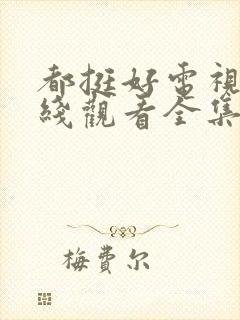 都挺好电視
綫觀看全集
梅費尔